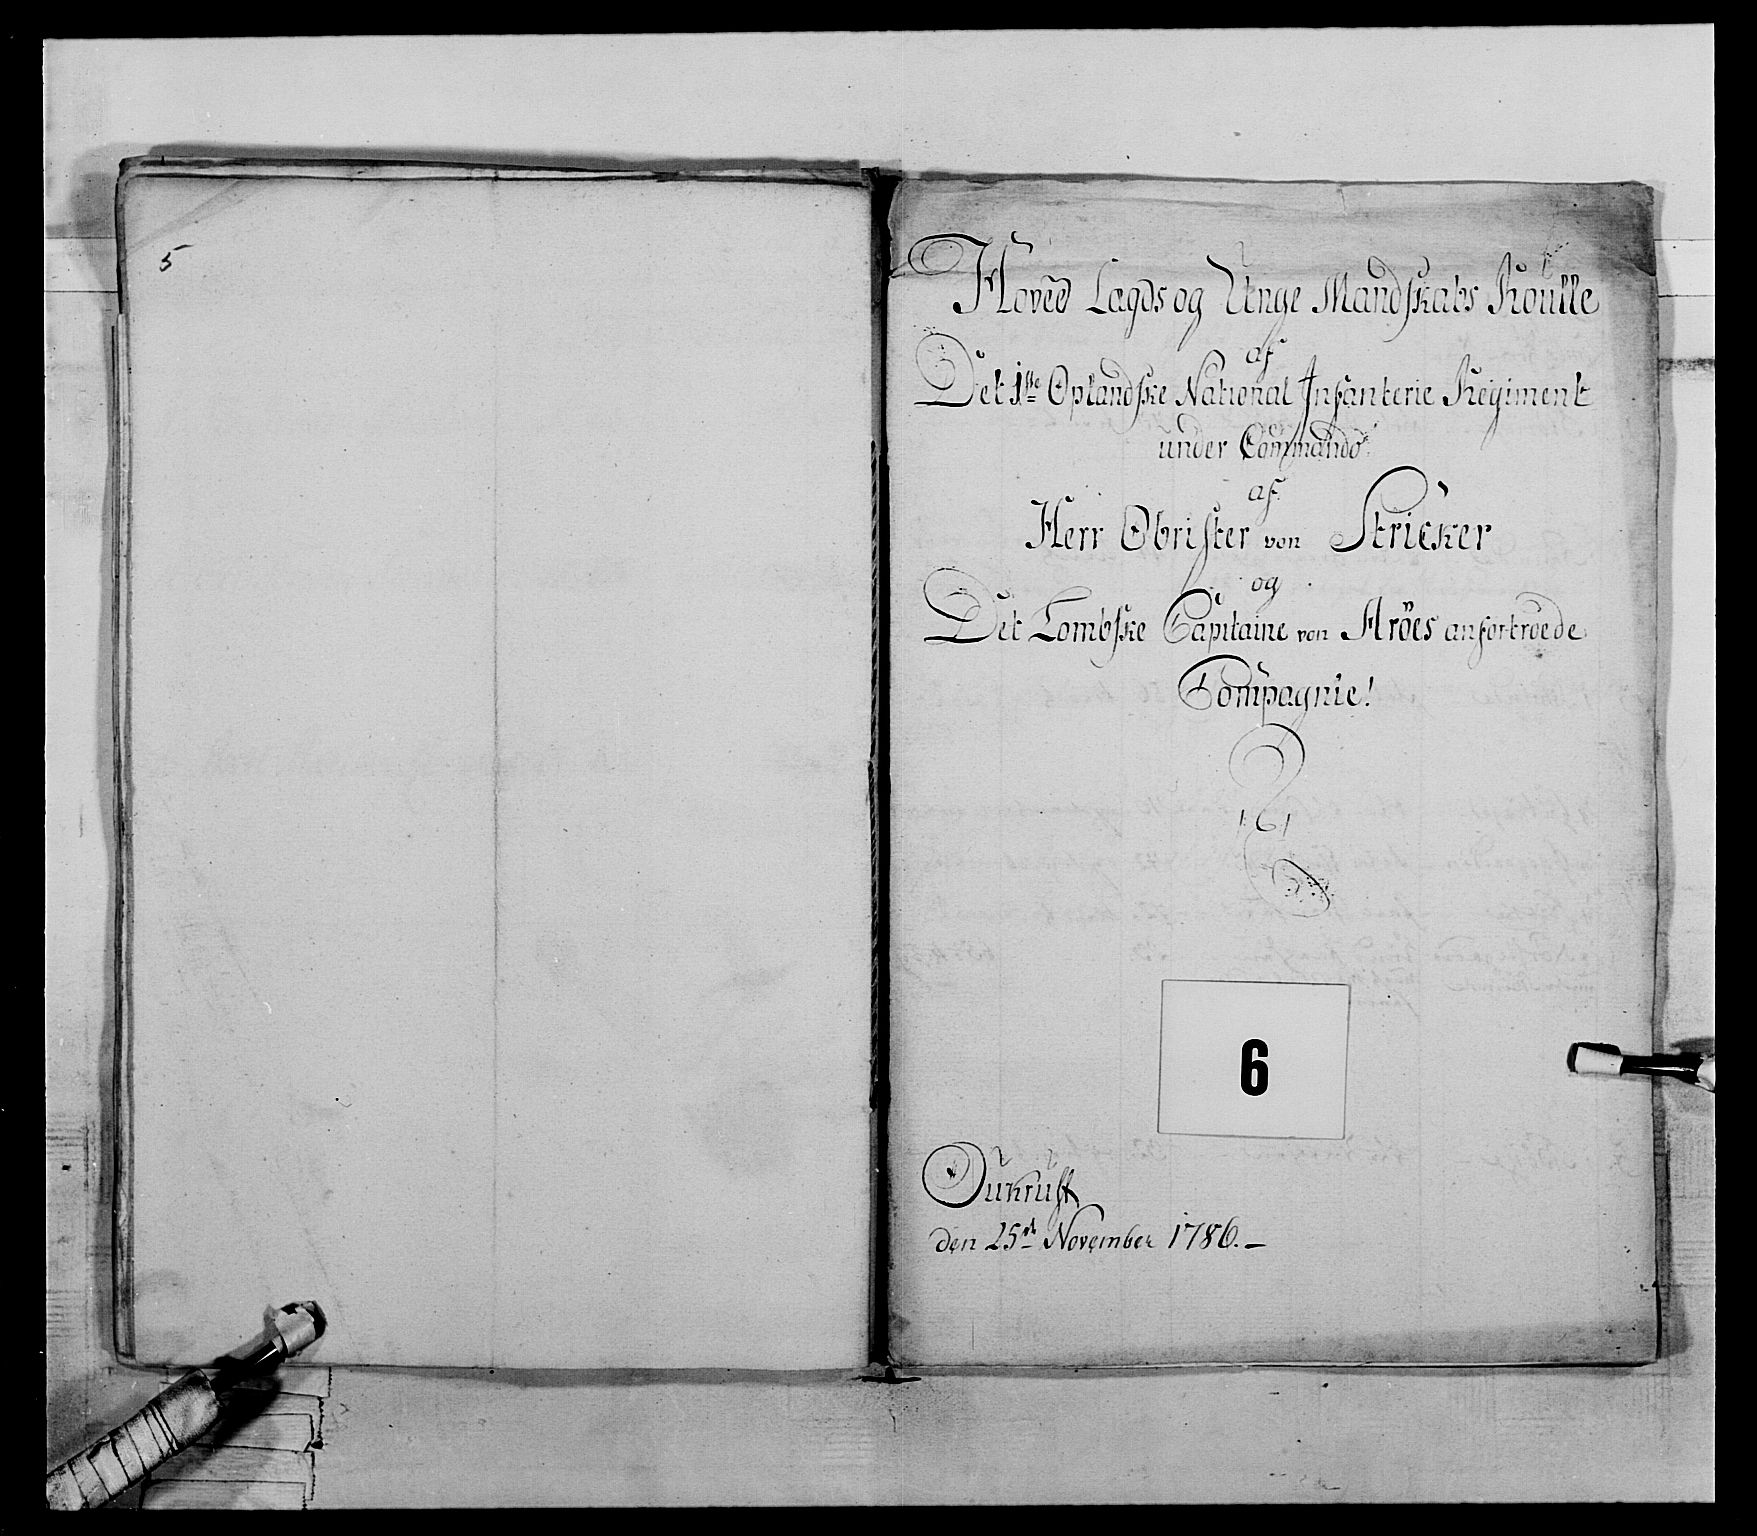 5
Hoved Lægds og Unge Mandskabs Roulle
af
Det 1ste Oplandske National Infanterie Regiment
under Commando
af
Herr Obrister von Stricker
og
Det Lombske Capitaine von Aröes anfortroede
Compagnie!
6
den 25de November 1786.